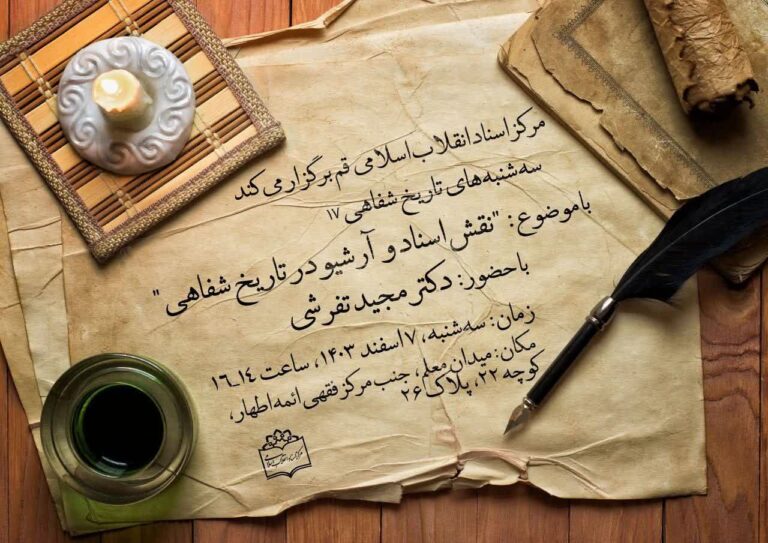 مرکز اسناد انقلاب اسلامی قم برگزار می کند
سه‌شنبه‌های تاریخ شفاهی ۱۷
با موضوع: "نقش اسناد و آرشیو در تاریخ شفاهی"
با حضور: دکتر مجید تفرشی
زمان: سه‌شنبه، ۷ اسفند ۱۴۰۳، ساعت ۱۴_۱۶
مکان: میدان معلم، جنب مرکز فقهی ائمه اطهار،
کوچه ۲۲، پلاک ۲۶
مرکز اسناد انقلاب اسلامی